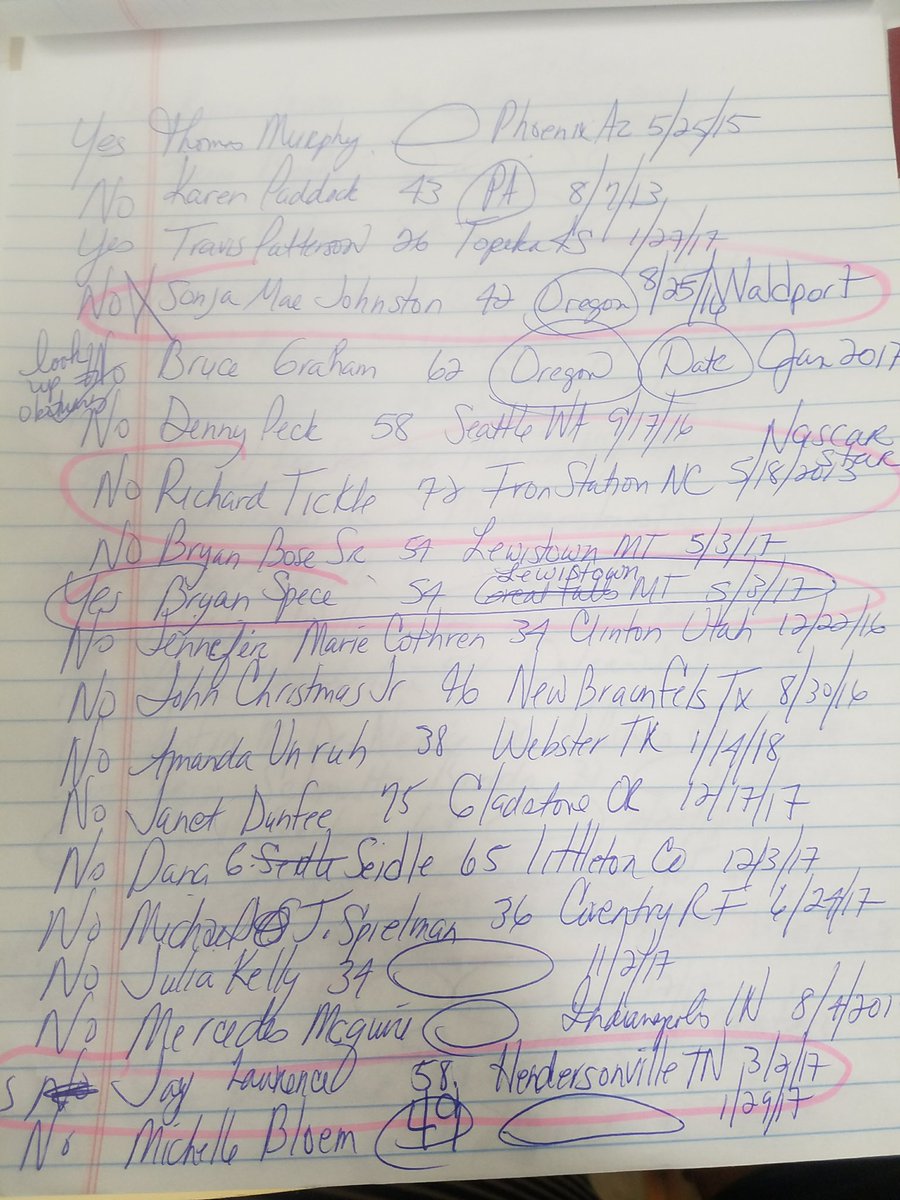 Yes Thomas Murphy. Phoenix Az 5/25/15
No Karen Paddock 43 PA 8/7/13
Yes Travis Patterson 26 Topeka KS 1/27/17
No X Sonja Mae Johnston 42 Oregon 8/25/16 Waldport
look up
No Bruce Graham 62 Oregon Date Jan 2017
No Denny Peck 58 Seattle WA 9/17/16
Nascar Star
No Richard Tickle 72 Iron Station NC 5/18/2013
No Bryan Bose Sr 54 Lewistown MT 5/3/17
Lewistown
Yes Bryan Spece 54 Great Falls MT 5/3/17
No Jennefer Marie Cothren 34 Clinton Utah 12/22/16
No John Christmas Jr 46 New Braunfels Tx 8/30/16
No Amanda Unruh 38 Webster TX 1/14/18
No Janet Dunfee 75 Gladstone OR 12/17/17
No Dana G. Seidle 65 Littleton Co 12/3/17
No Michael J. Spielman 36 Coventry RI 6/24/17
No Julia Kelly 34 11/2/17
No Mercedes Mcguire Indianapolis IN 8/4/201
Jay Lawrence 58 Hendersonville TN 3/2/17
No Michelle Bloem 49 1/29/17